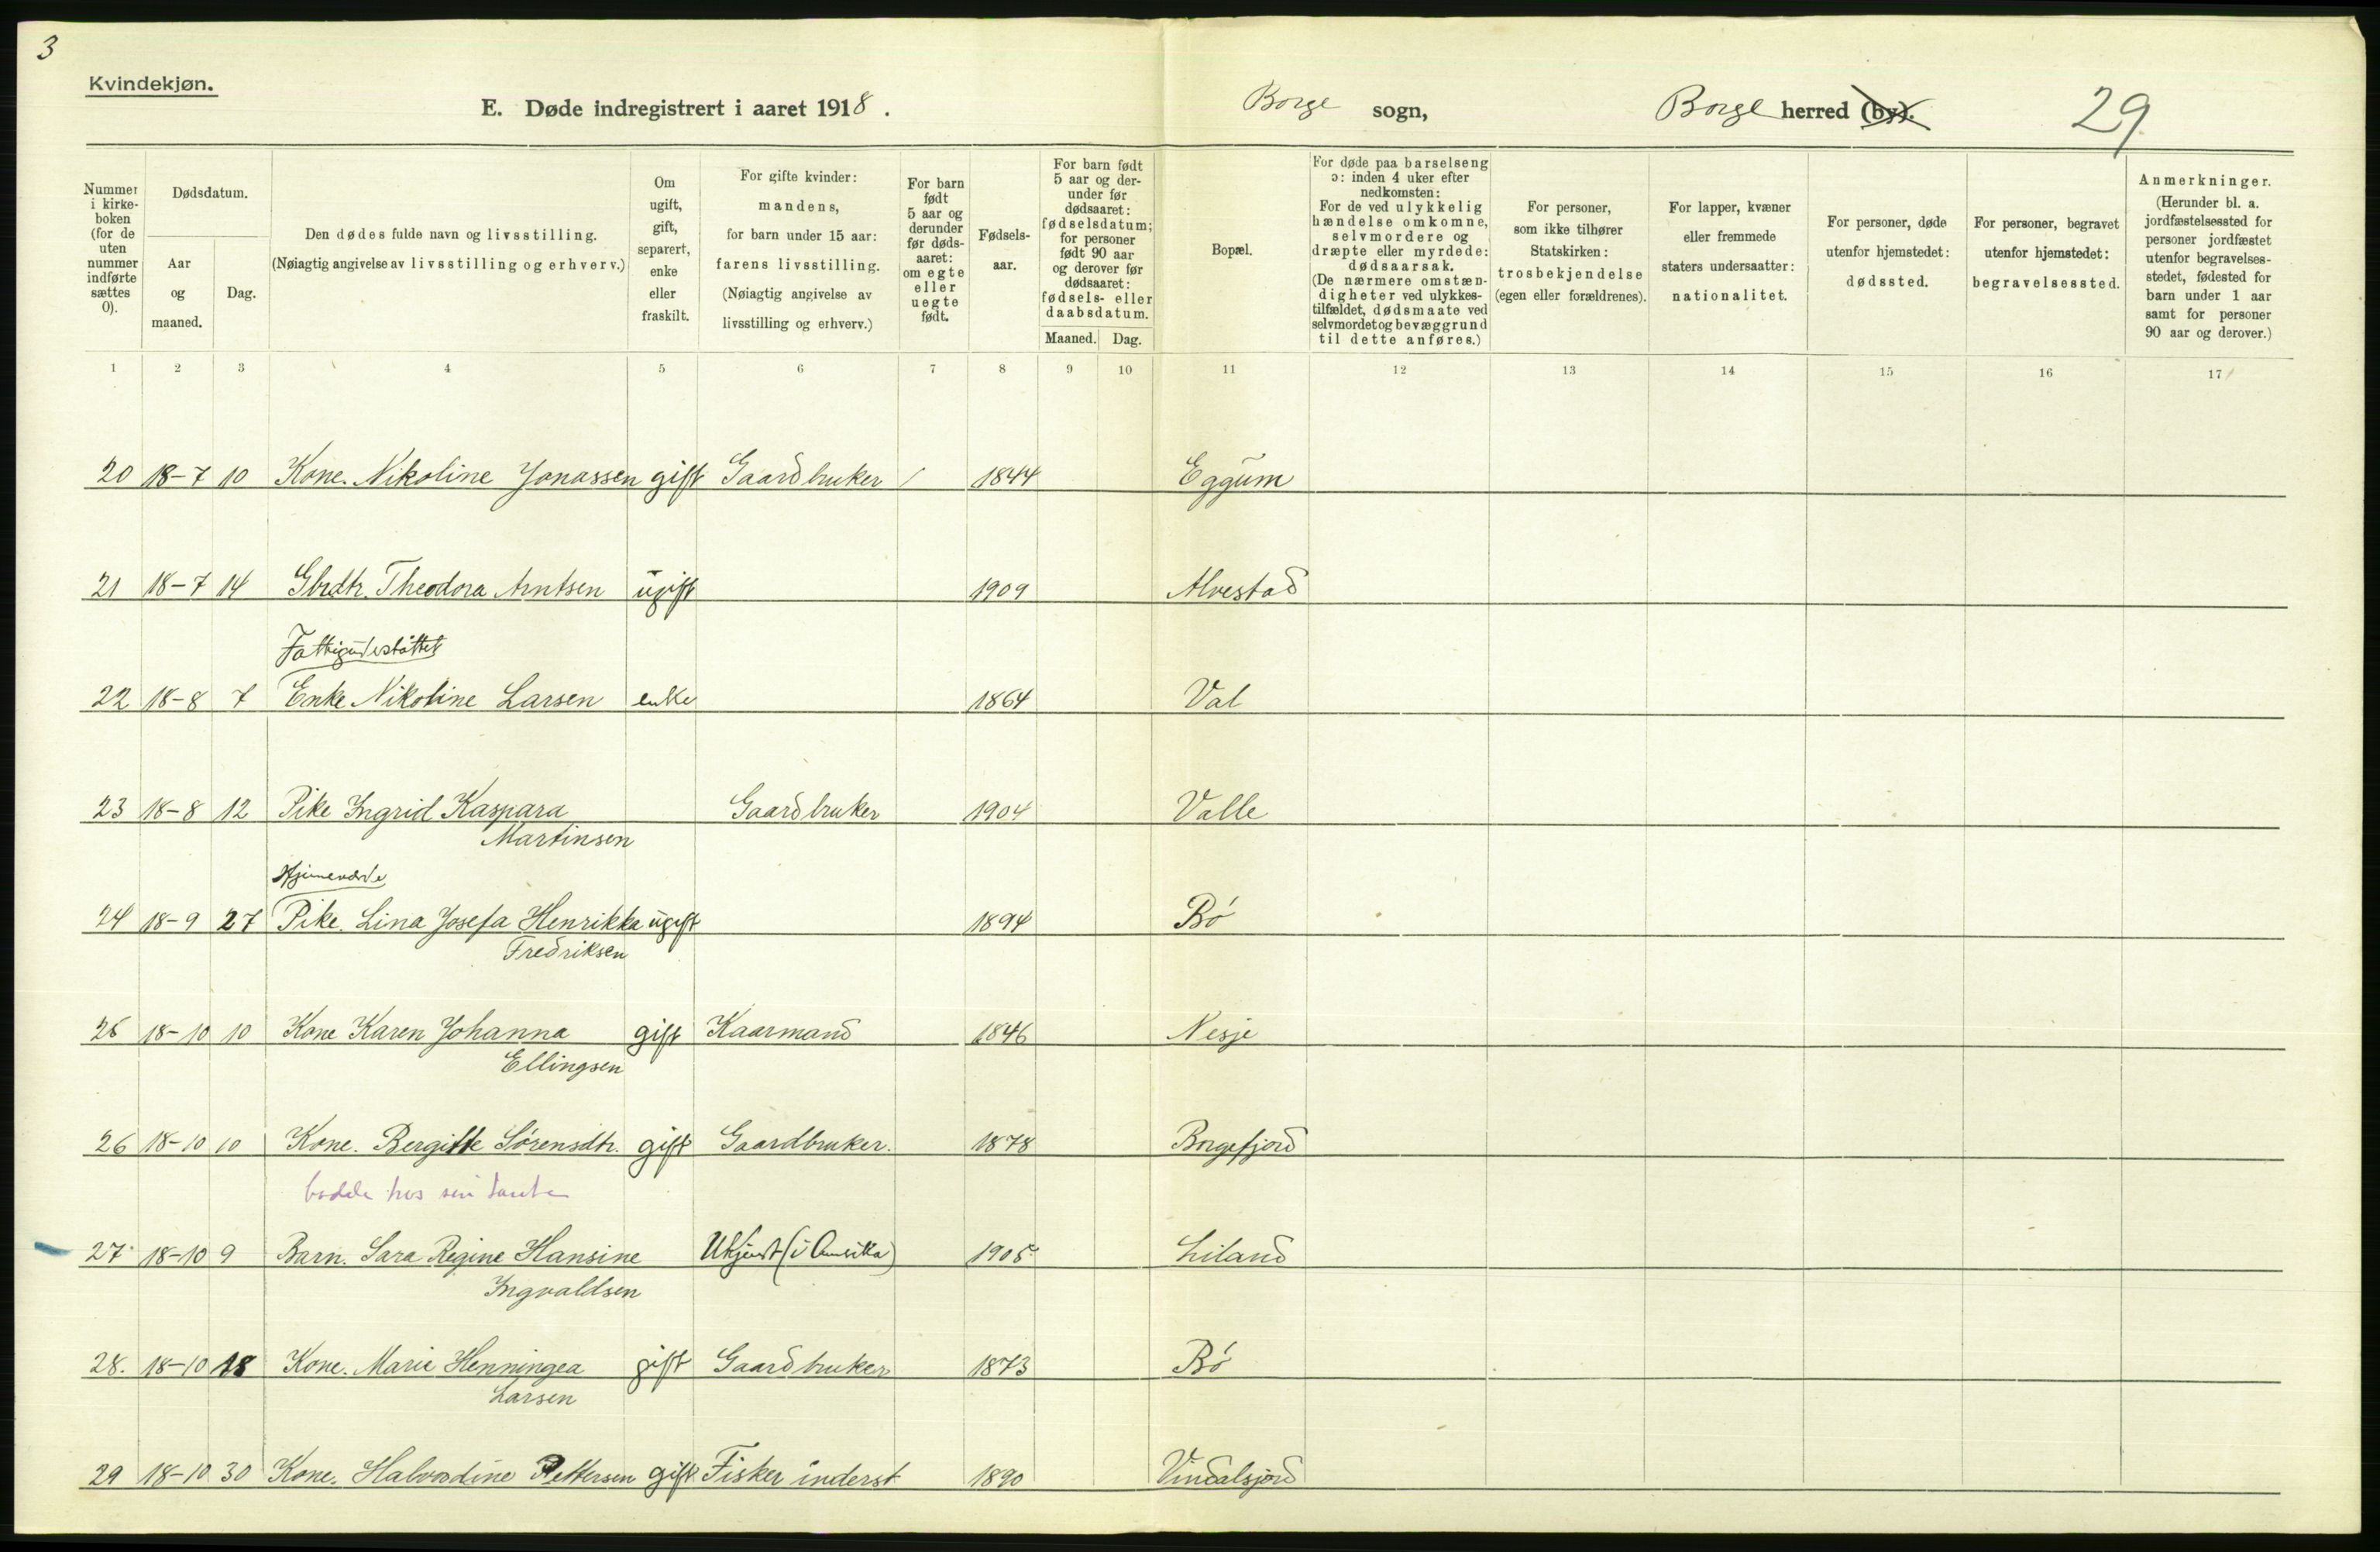 3
Kvindekjøn.
E. Døde indregistrert i aaret 1918.
Borge sogn,
Borge herred (by).
29
Nummer i kirkeboken (for de uten nummer indførte sættes 0).
Dødsdatum.
Aar og maaned.
Dag.
Den dødes fulde navn og livsstilling.
(Nøiagtig angivelse av livsstilling og erhverv.)
Om ugift, gift, separert, enke eller fraskilt.
For gifte kvinder: mandens, for barn under 15 aar: farens livsstilling. (Nøiagtig angivelse av livsstilling og erhverv.)
For barn født 5 aar og derunder før dødsaaret: om egte eller uegte født.
Fødselsaar.
For barn født 5 aar og derunder før dødsaaret: fødselsdatum; for personer født 90 aar og derover før dødsaaret: fødsels- eller daabsdatum.
Maaned. Dag.
Bopæl.
For døde paa barselseng ɔ: inden 4 uker efter nedkomsten: For de ved ulykkelig hændelse omkomne, selvmordere og dræpte eller myrdede: dødsaarsak. (De nærmere omstændigheter ved ulykkestilfældet, dødsmaate ved selvmordet og bevæggrund til dette anføres.)
For personer, som ikke tilhører Statskirken: trosbekjendelse (egen eller forældrenes).
For lapper, kvæner eller fremmede staters undersaatter: nationalitet.
For personer, døde utenfor hjemstedet: dødssted.
For personer, begravet utenfor hjemstedet: begravelsessted.
Anmerkninger. (Herunder bl. a. jordfæstelsessted for personer jordfæstet utenfor begravelsesstedet, fødested for barn under 1 aar samt for personer 90 aar og derover.)
1 2 3 4 5 6 7 8 9 10 11 12 13 14 15 16 17
20 18-7 10 Kone. Nikoline Jonassen gift Gaardbruker / 1844 Eggum
21 18-7 14 Gbrdtr. Theodora Arntsen ugift 1909 Alvestad
Fattigunderstøttet
22 18-8 7 Enke Nikoline Larsen enke 1864 Val
23 18-8 12 Pike Ingrid Kaspara Gaardbruker 1904 Valle
Martinsen
Hjemmeværende
24 18-9 27 Pike. Lina Josefa Henrikka ugift 1894 Bø
Fredriksen
25 18-10 10 Kone Karen Johanna gift Kaarmand 1846 Nesje
Ellingsen
26 18-10 10 Kone. Bergitte Sørensdtr. gift Gaardbruker. 1878 Borgefjord
bodde hos sin tante
27 18-10 9 Barn. Sara Regine Hansine Ukjent (i Amerika) 1905 Liland
Ingvaldsen
28. 18-10 18 Kone. Marie Henningea gift Gaardbruker 1873 Bø
Larsen
29 18-10 30 Kone. Halvordine Pettersen gift Fisker inderst 1890 Vindalsjord